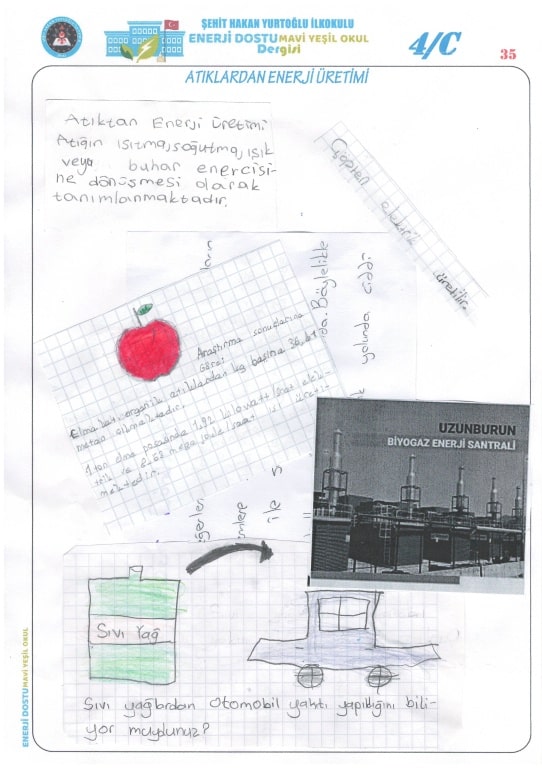 ŞEHİT HAKAN YURTOĞLU İLKOKULU
ENERJİ DOSTU MAVİ YEŞİL OKUL
Dergisi
4/C
35
ATIKLARDAN ENERJİ ÜRETİMİ
Atıktan Enerji Üretimi
Atığın ısıtma, soğutma, ışık
veya buhar enercisi-
ne dönüşmesi olarak
tanımlanmaktadır.
Çöpten elektrik üretilir.
da. Böylelikle
yolunda ciddi
Araştırma sonuçlarına
Göre:
Elma katı organik atıklardan kg başına
metan çıkmaktadır.
1 ton elma posasında 1,92 kilowatt/saat elek-
trik ve 8,68 mega joule/saat ısı üretil-
mektedir.
UZUNBURUN
BİYOGAZ ENERJİ SANTRALİ
ile
Sıvı Yağ
Sıvı yağlardan otomobil yakıtı yapıldığını bili-
yor muydunuz?
ENERJİ DOSTU MAVİ YEŞİL OKUL